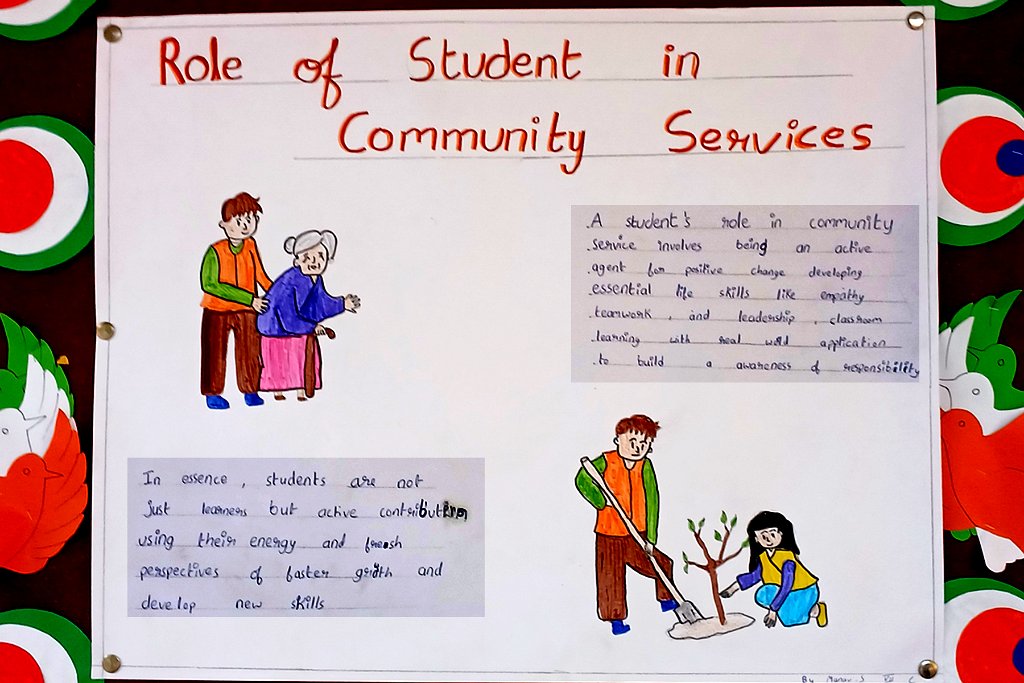 Role of Student in
Community Services
A student's role in community
service involves being an active
agent for positive change developing
essential life skills like empathy
teamwork , and leadership , classroom
learning with real world application
to build a awareness of responsibility
In essence , students are not
just learners but active contributing
using their energy and fresh
perspectives of faster growth and
develop new skills
By Manav S